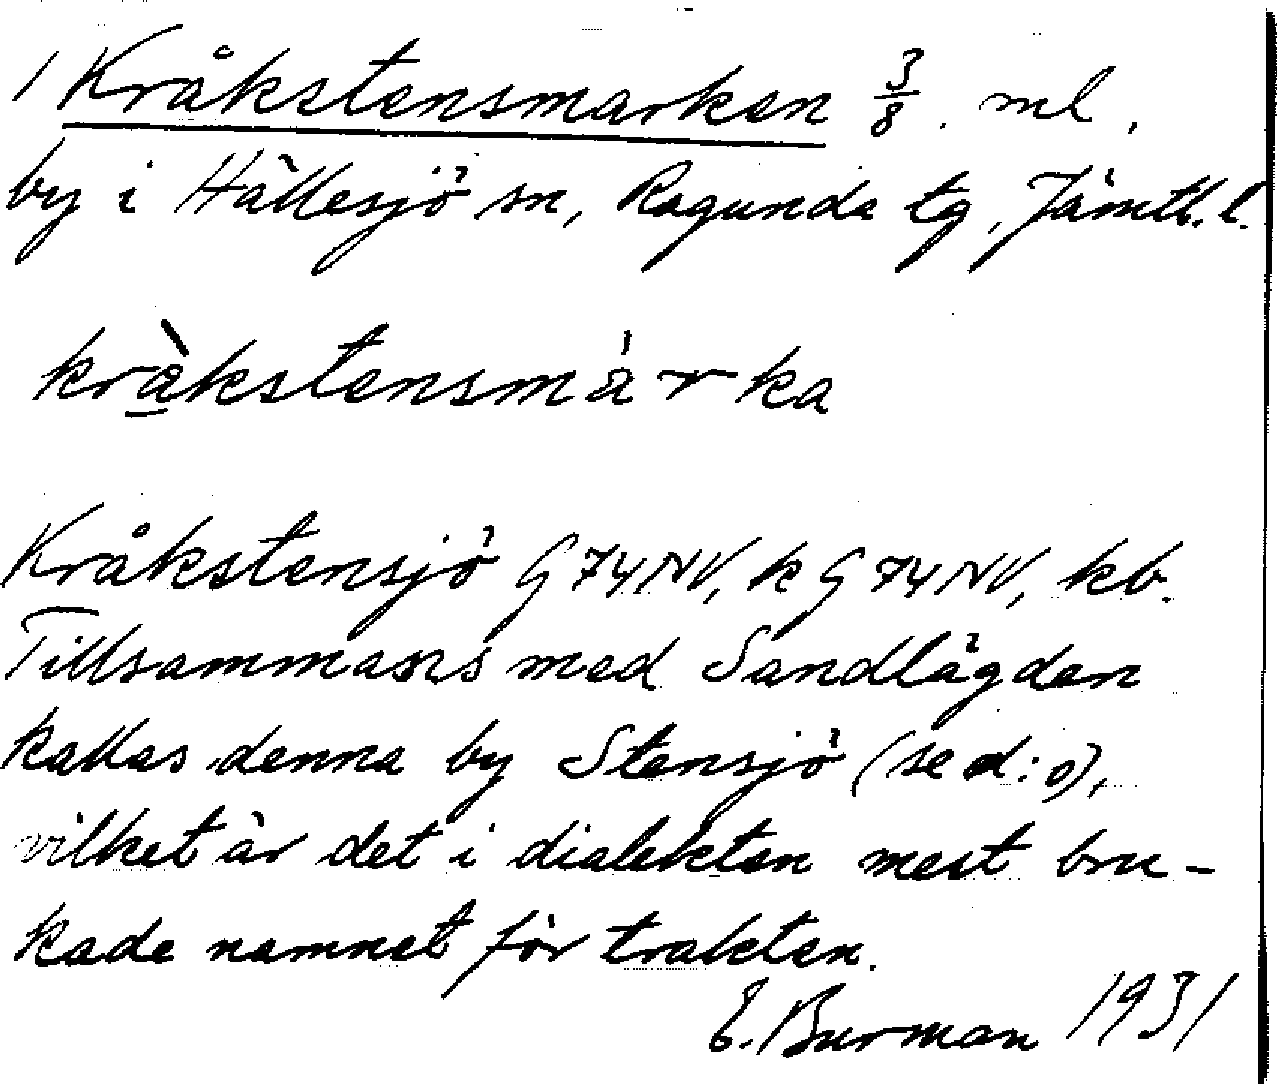 1 Kråkstensmarken 3/8. ml.
by i Hällesjö sn, Ragunda tg, Jämtl. l.
kràkstensmárka
Kråkstensjö G74NV, k G74NV, kb.
Tillsammans med Sandlägden
kallas denna by Stensjö (se d:o),
vilket är det i dialekten mest bru-
kade namnet för trakten.
E. Burman 1931